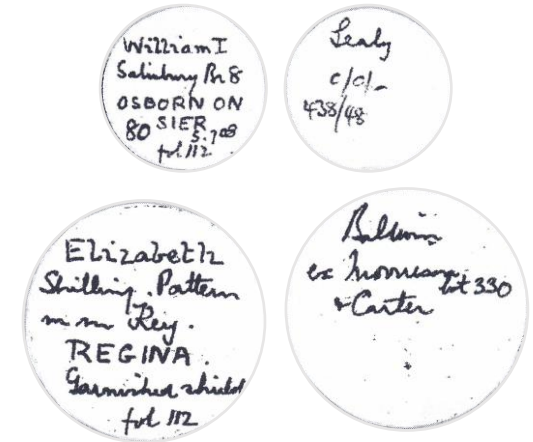 William I
Salisbury Br 8
OSBORN ON
SIER
80 5.7.08
fol 112
Sealy
c/c/-
438/48
Elizabeth
Shilling. Pattern
m m Key.
REGINA.
Garnished shield
fol 112
Baldwin
ex lot 330
& Carter